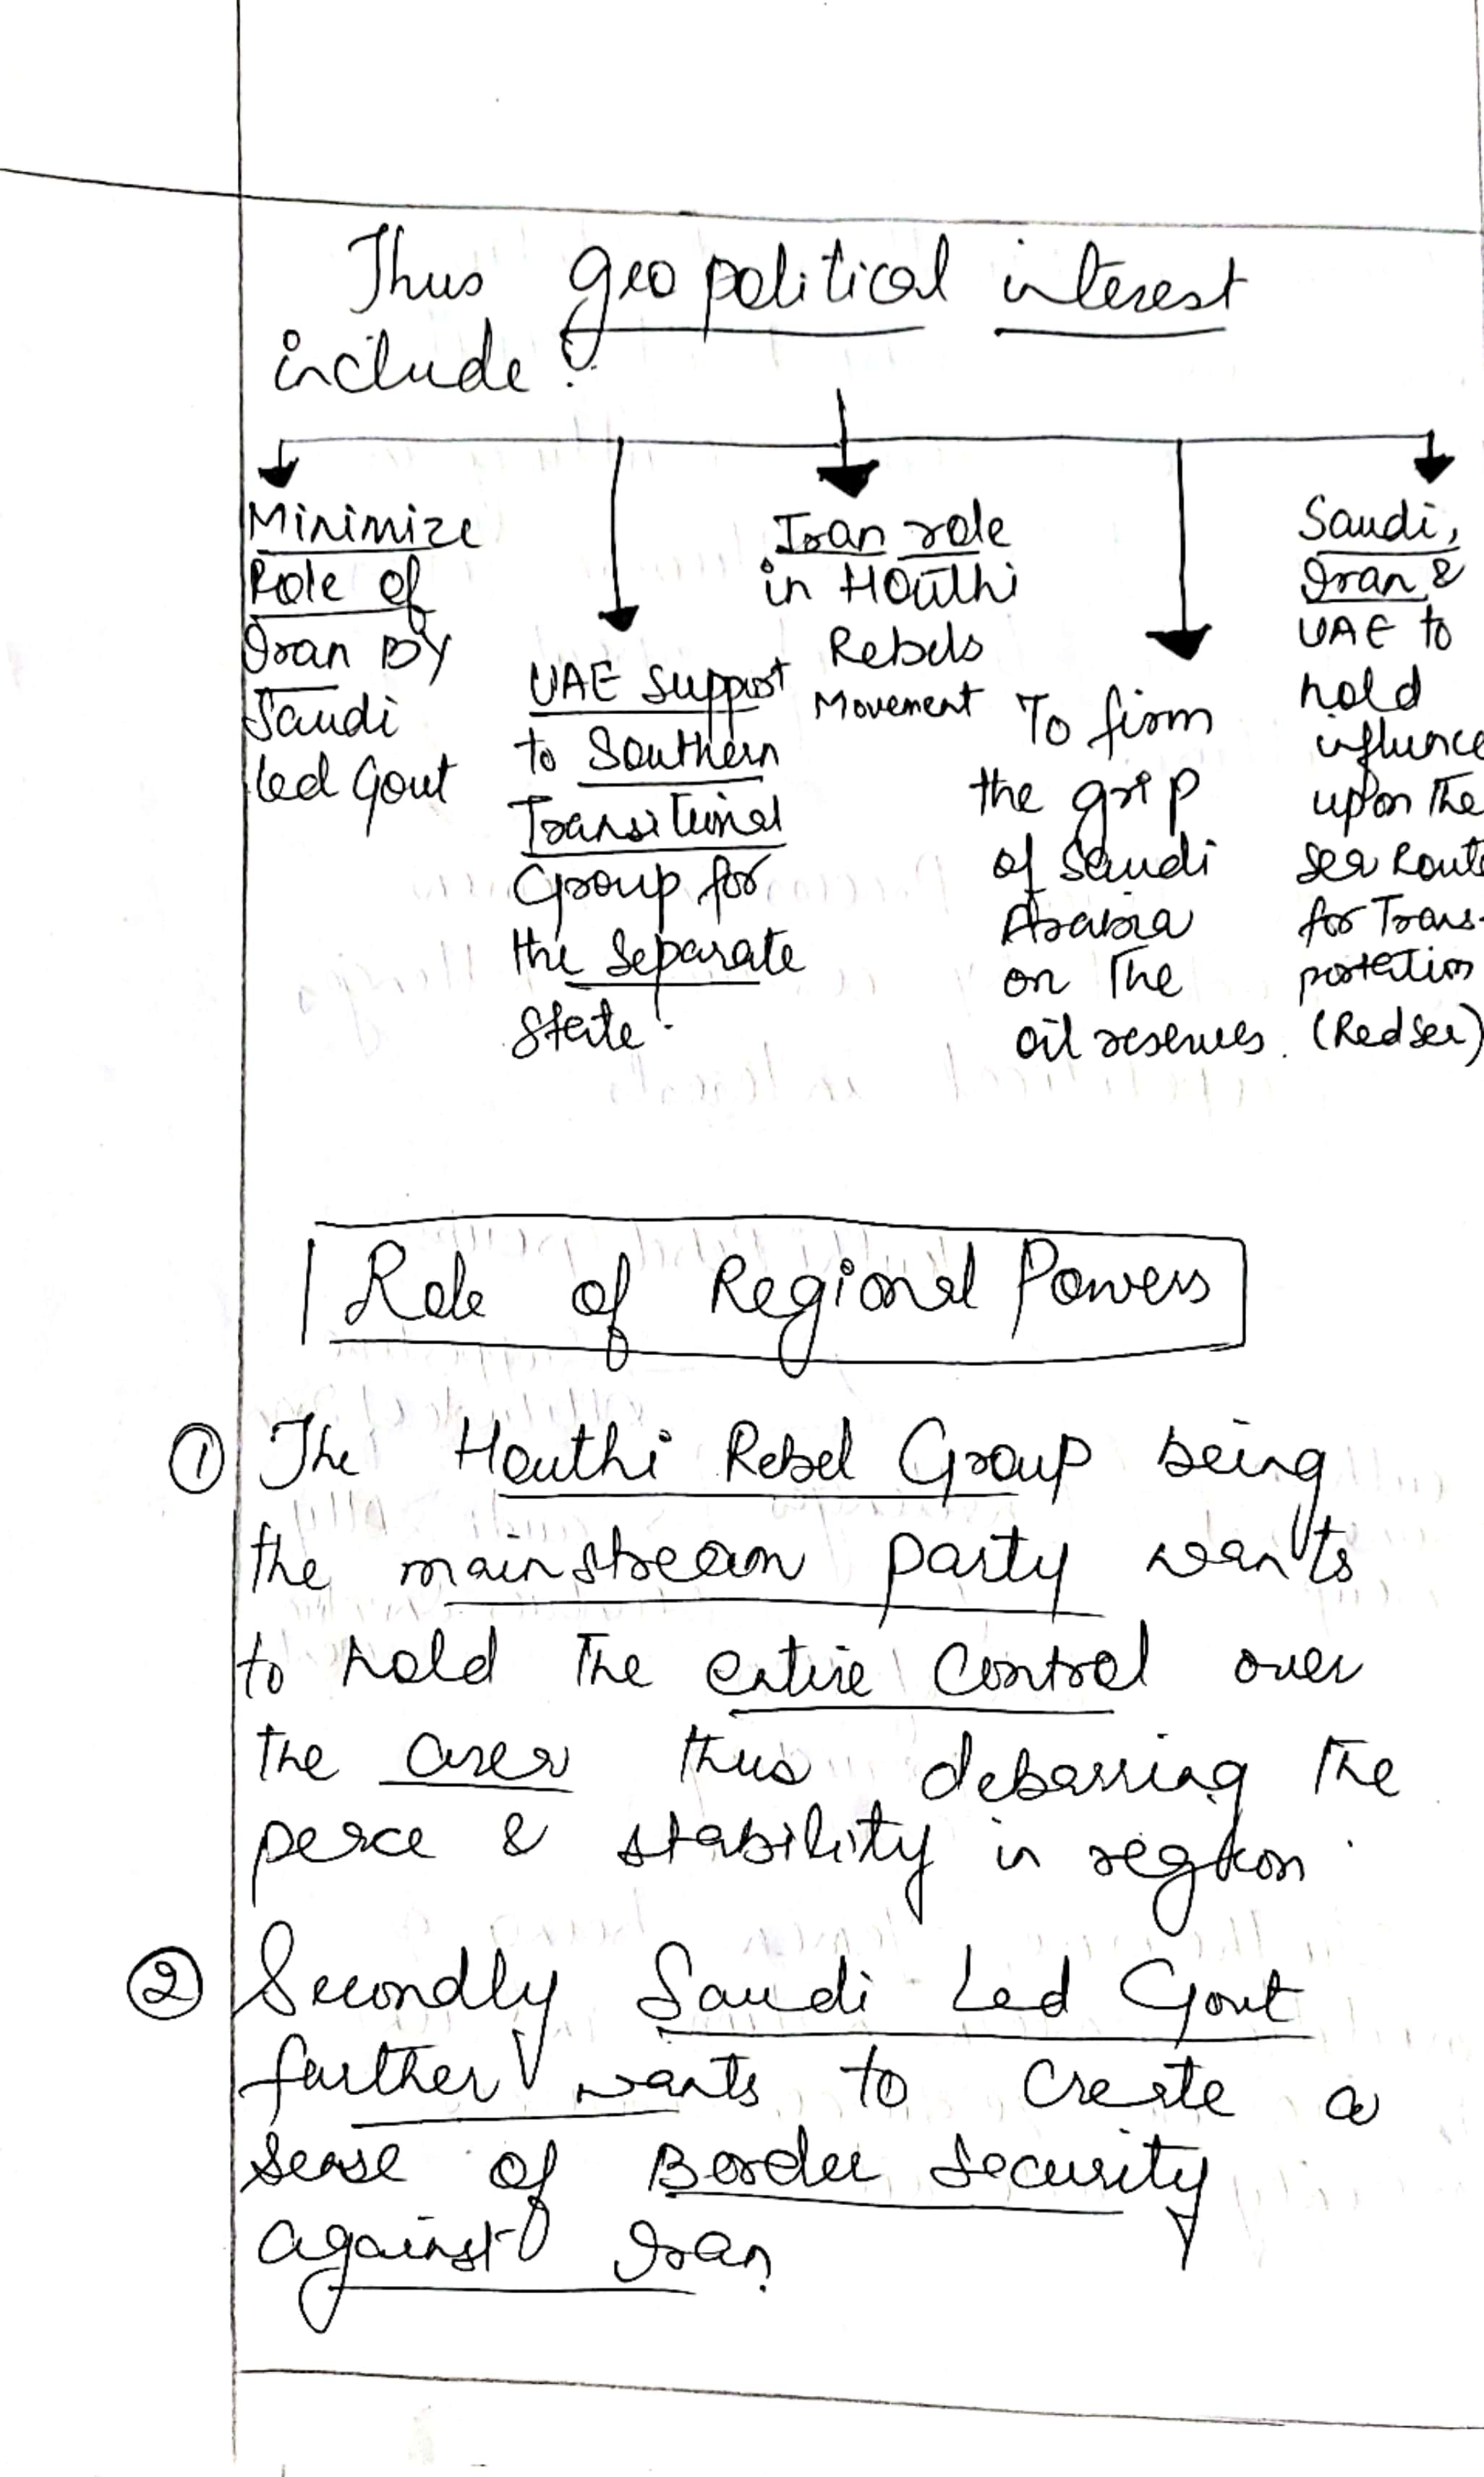 Thus geopolitical interest
include :
Minimize
Role of
Iran By
Saudi
led Govt
UAE Support
to Southern
Transitional
Group for
the Separate
State.
Iran role
in Houthi
Rebels
Movement
To firm
the grip
of Saudi
Arabia
on The
oil reserves.
Saudi,
Iran &
UAE to
hold
influnce
upon The
Sea Route
for Trans-
portation
(Red Sea)
Role of Regional Powers
① The Houthi Rebel Group being
the mainstream party wants
to hold The entire Control over
The area thus debarring The
peace & stability in region.
② Secondly Saudi Led Govt
further wants to Create a
sense of Border Security
against Iran.